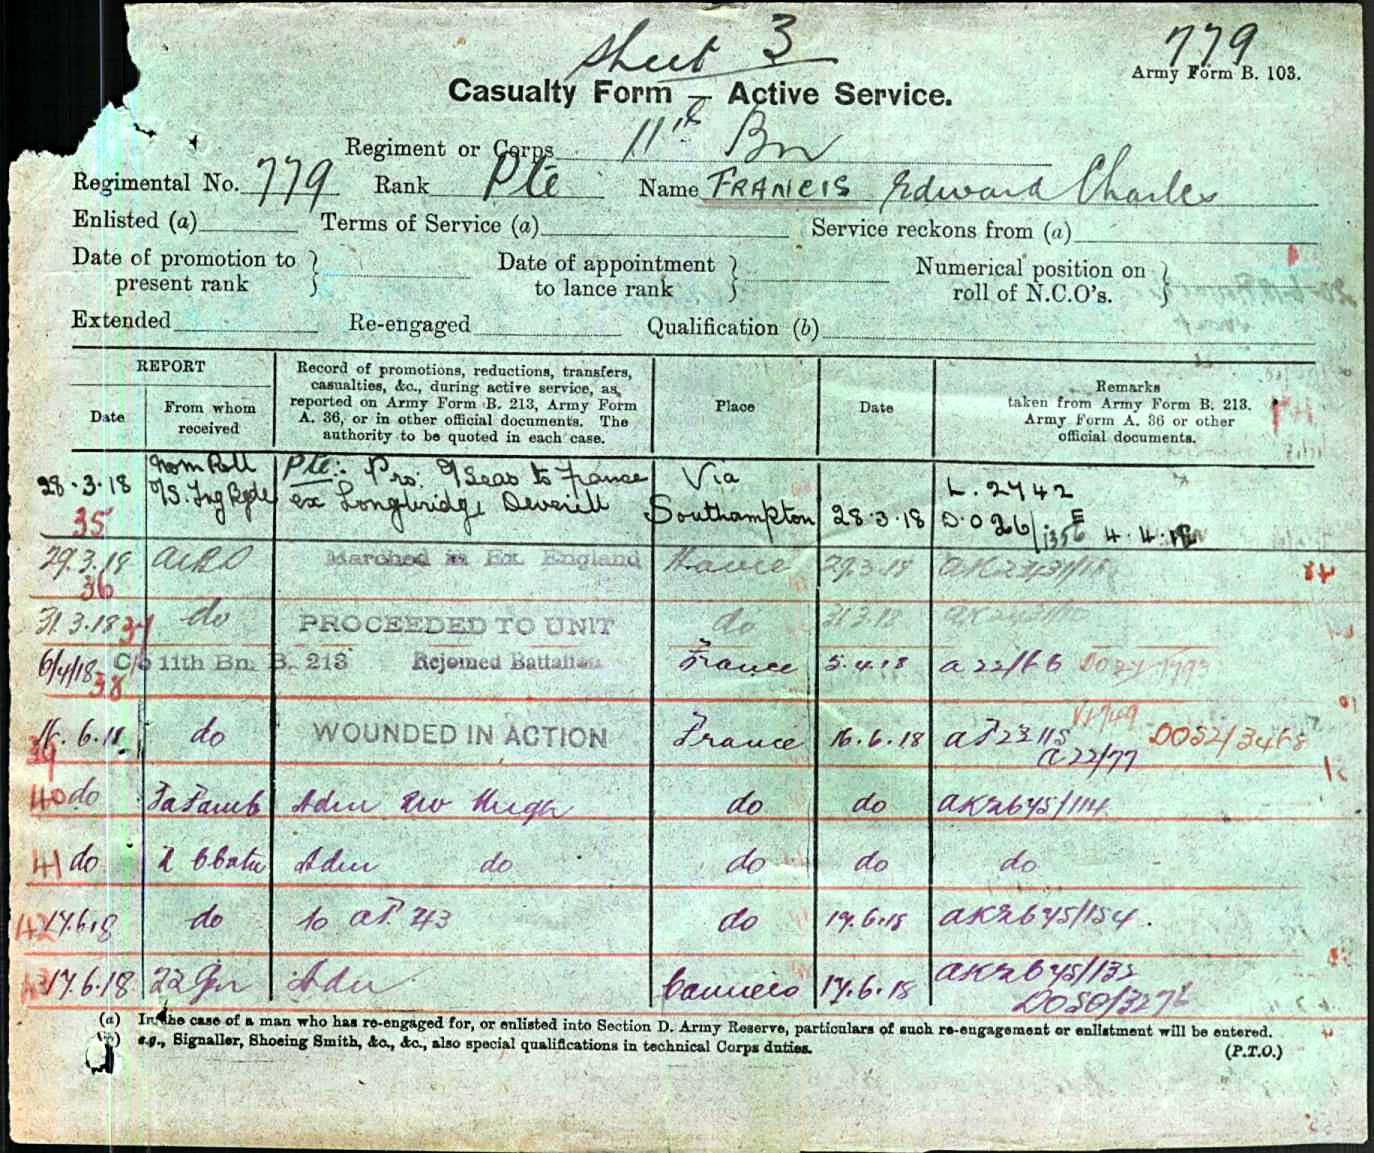 Sheet 3
779
Army Form B. 103.
Casualty Form — Active Service.
Regiment or Corps 11th Bn
Regimental No. 779 Rank Pte Name FRANCIS Edward Charles
Enlisted (a) Terms of Service (a) Service reckons from (a)
Date of promotion to present rank } Date of appointment to lance rank } Numerical position on roll of N.C.O's. }
Extended Re-engaged Qualification (b)
REPORT
Date
From whom received
Record of promotions, reductions, transfers,
casualties, &c., during active service, as
reported on Army Form B. 213, Army Form
A. 36, or in other official documents. The
authority to be quoted in each case.
Place
Date
Remarks
taken from Army Form B. 213.
Army Form A. 36 or other
official documents.
28.3.18 Nom Roll Pte: Pro: O/Seas to France Via L. 2742
35 O/S. Trg Bgde ex Longbridge Deverill Southampton 28.3.18 D.O 26/1356 4.4.18
29.3.18 36 Marched in Ex. England Havre 29.3.18
31.3.18 37 do PROCEEDED TO UNIT do 31.3.18
6/4/18 38 C/o 11th Bn. B. 213 Rejoined Battalion France 5.4.18 a 22/66
16.6.18 39 do WOUNDED IN ACTION France 16.6.18 DO52/3468
a 22/77
40 do Adm do do AK2645/114
41 do Adm do do do do
42 17.6.18 do to 43 do 17.6.18 AK2645/154.
43 17.6.18 22 Gen Adm Camiers 17.6.18 AK2645/132
DO50/3276
(a) In the case of a man who has re-engaged for, or enlisted into Section D. Army Reserve, particulars of such re-engagement or enlistment will be entered.
e.g., Signaller, Shoeing Smith, &c., &c., also special qualifications in technical Corps duties.
(P.T.O.)